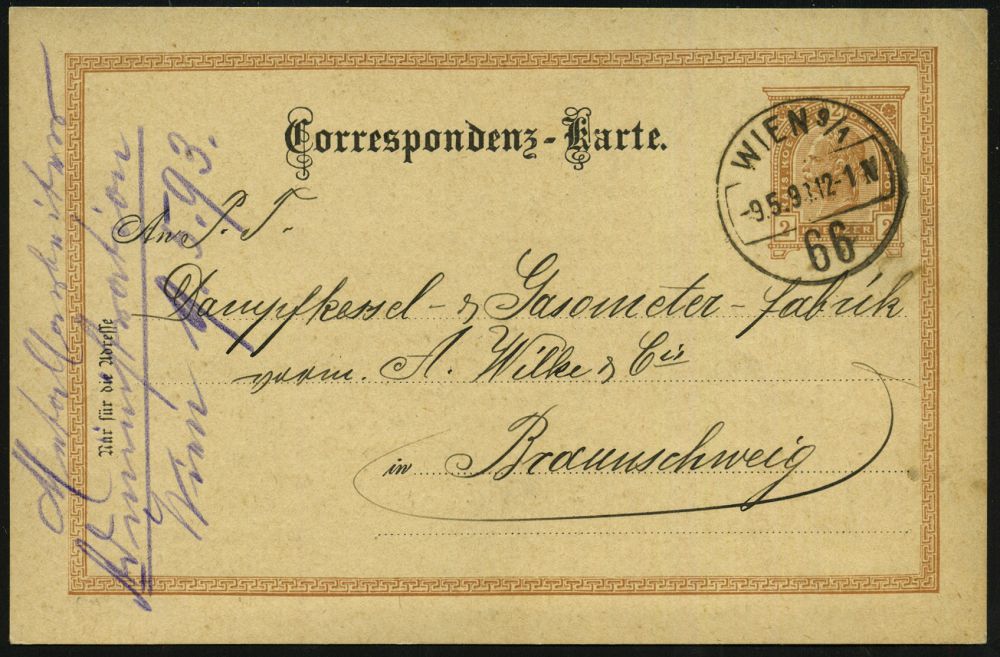 Correspondenz-Karte.
WIEN 9/1
-9.5.93.12-1 N
66
2 2
An P. T.
Dampfkessel- & Gasometer-fabrik
vorm. A. Wilke & Cie
in Braunschweig
Nur für die Adresse
Wien 5.93.